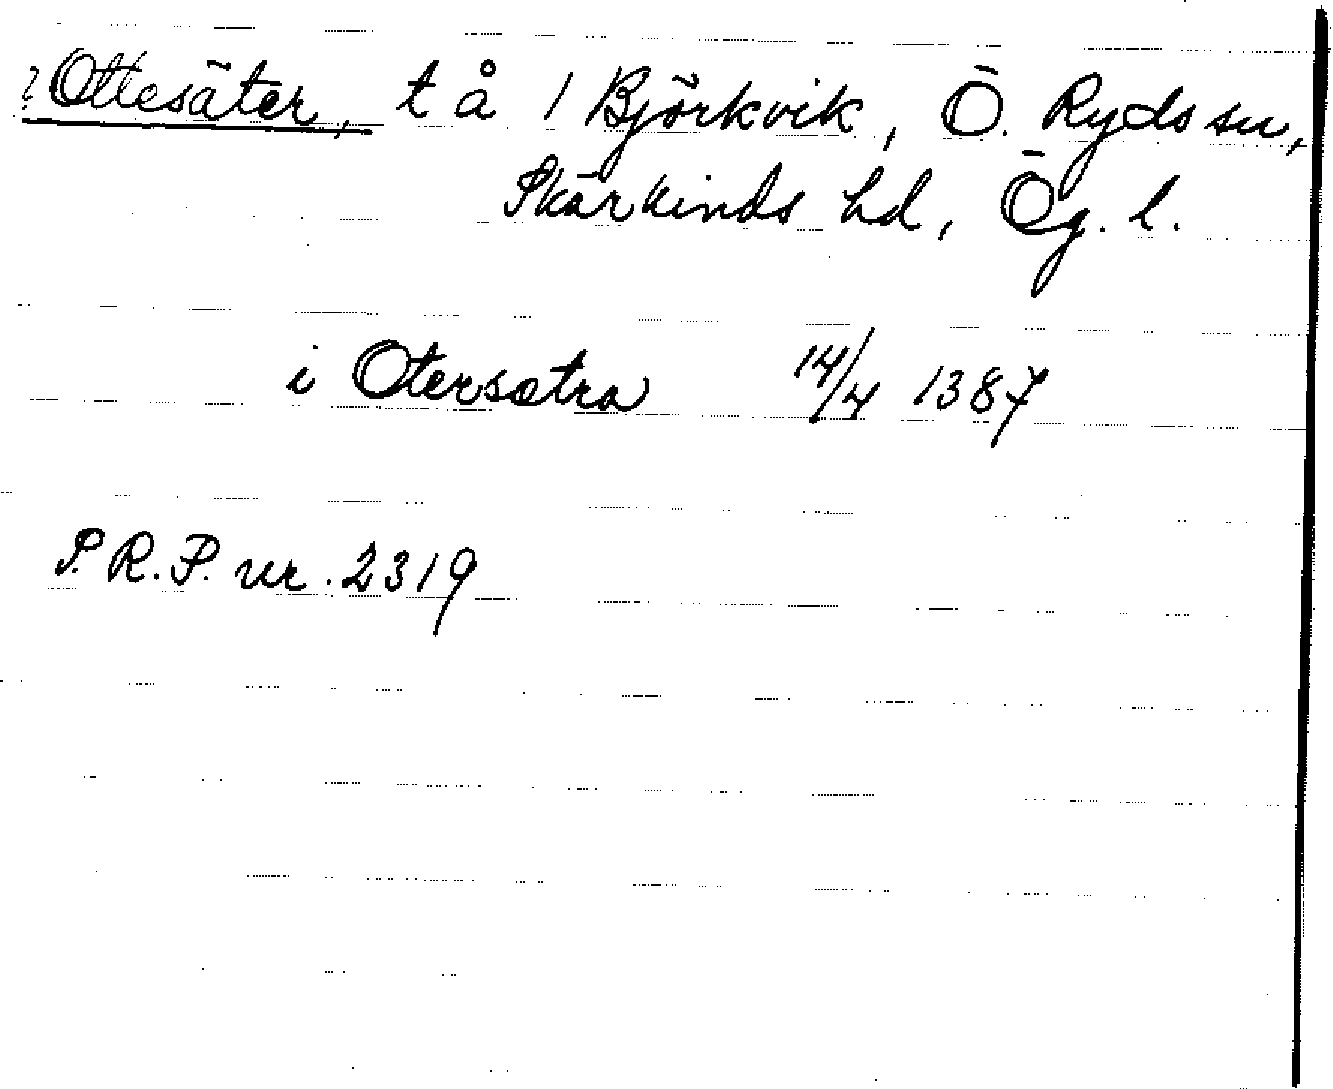 ?Ottesäter, t å 1 Björkvik, Ö. Ryds sn,
Skärkinds hd, Ög. l.
i Otersætra 14/4 1387
P. R. P. nr. 2319